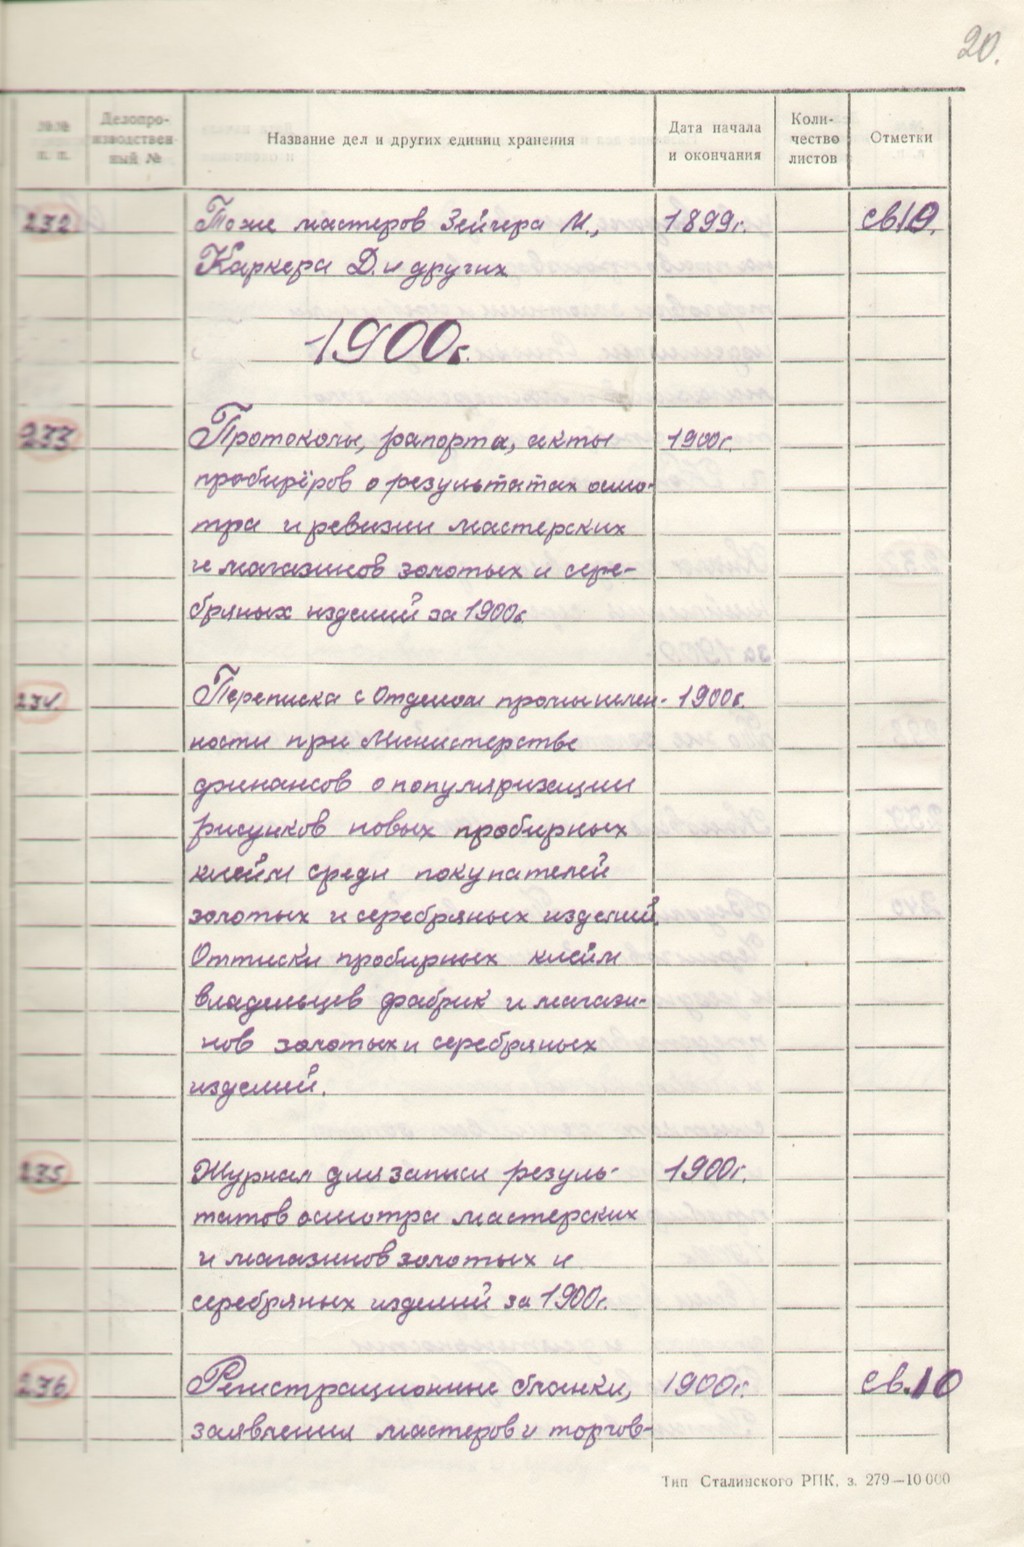 20.
№№ п. п.
Делопро-
изводствен-
ный №
Название дел и других единиц хранения
Дата начала
и окончания
Коли-
чество
листов
Отметки
232. Тоже мастеров Зейчера М., 1899г. св19.
Каркера Д. и других
1900г.
233. Протоколы, рапорта, акты 1900г.
пробирёров о результатах осмо-
тра и ревизии мастерских
и магазинов золотых и сере-
бряных изделий за 1900г.
234. Переписка с Отделом промышлен- 1900г.
ности при Министерстве
финансов о популяризации
рисунков новых пробирных
клейм среди покупателей
золотых и серебряных изделий.
Оттиски пробирных клейм
владельцев фабрик и магази-
нов золотых и серебряных
изделий.
235 Журнал для записи резуль- 1900г.
татов осмотра мастерских
и магазинов золотых и
серебряных изделий за 1900г.
236. Регистрационные бланки, 1900г. св.10
заявления мастеров и торгов-
Тип Сталинского РПК, з. 279—10 000